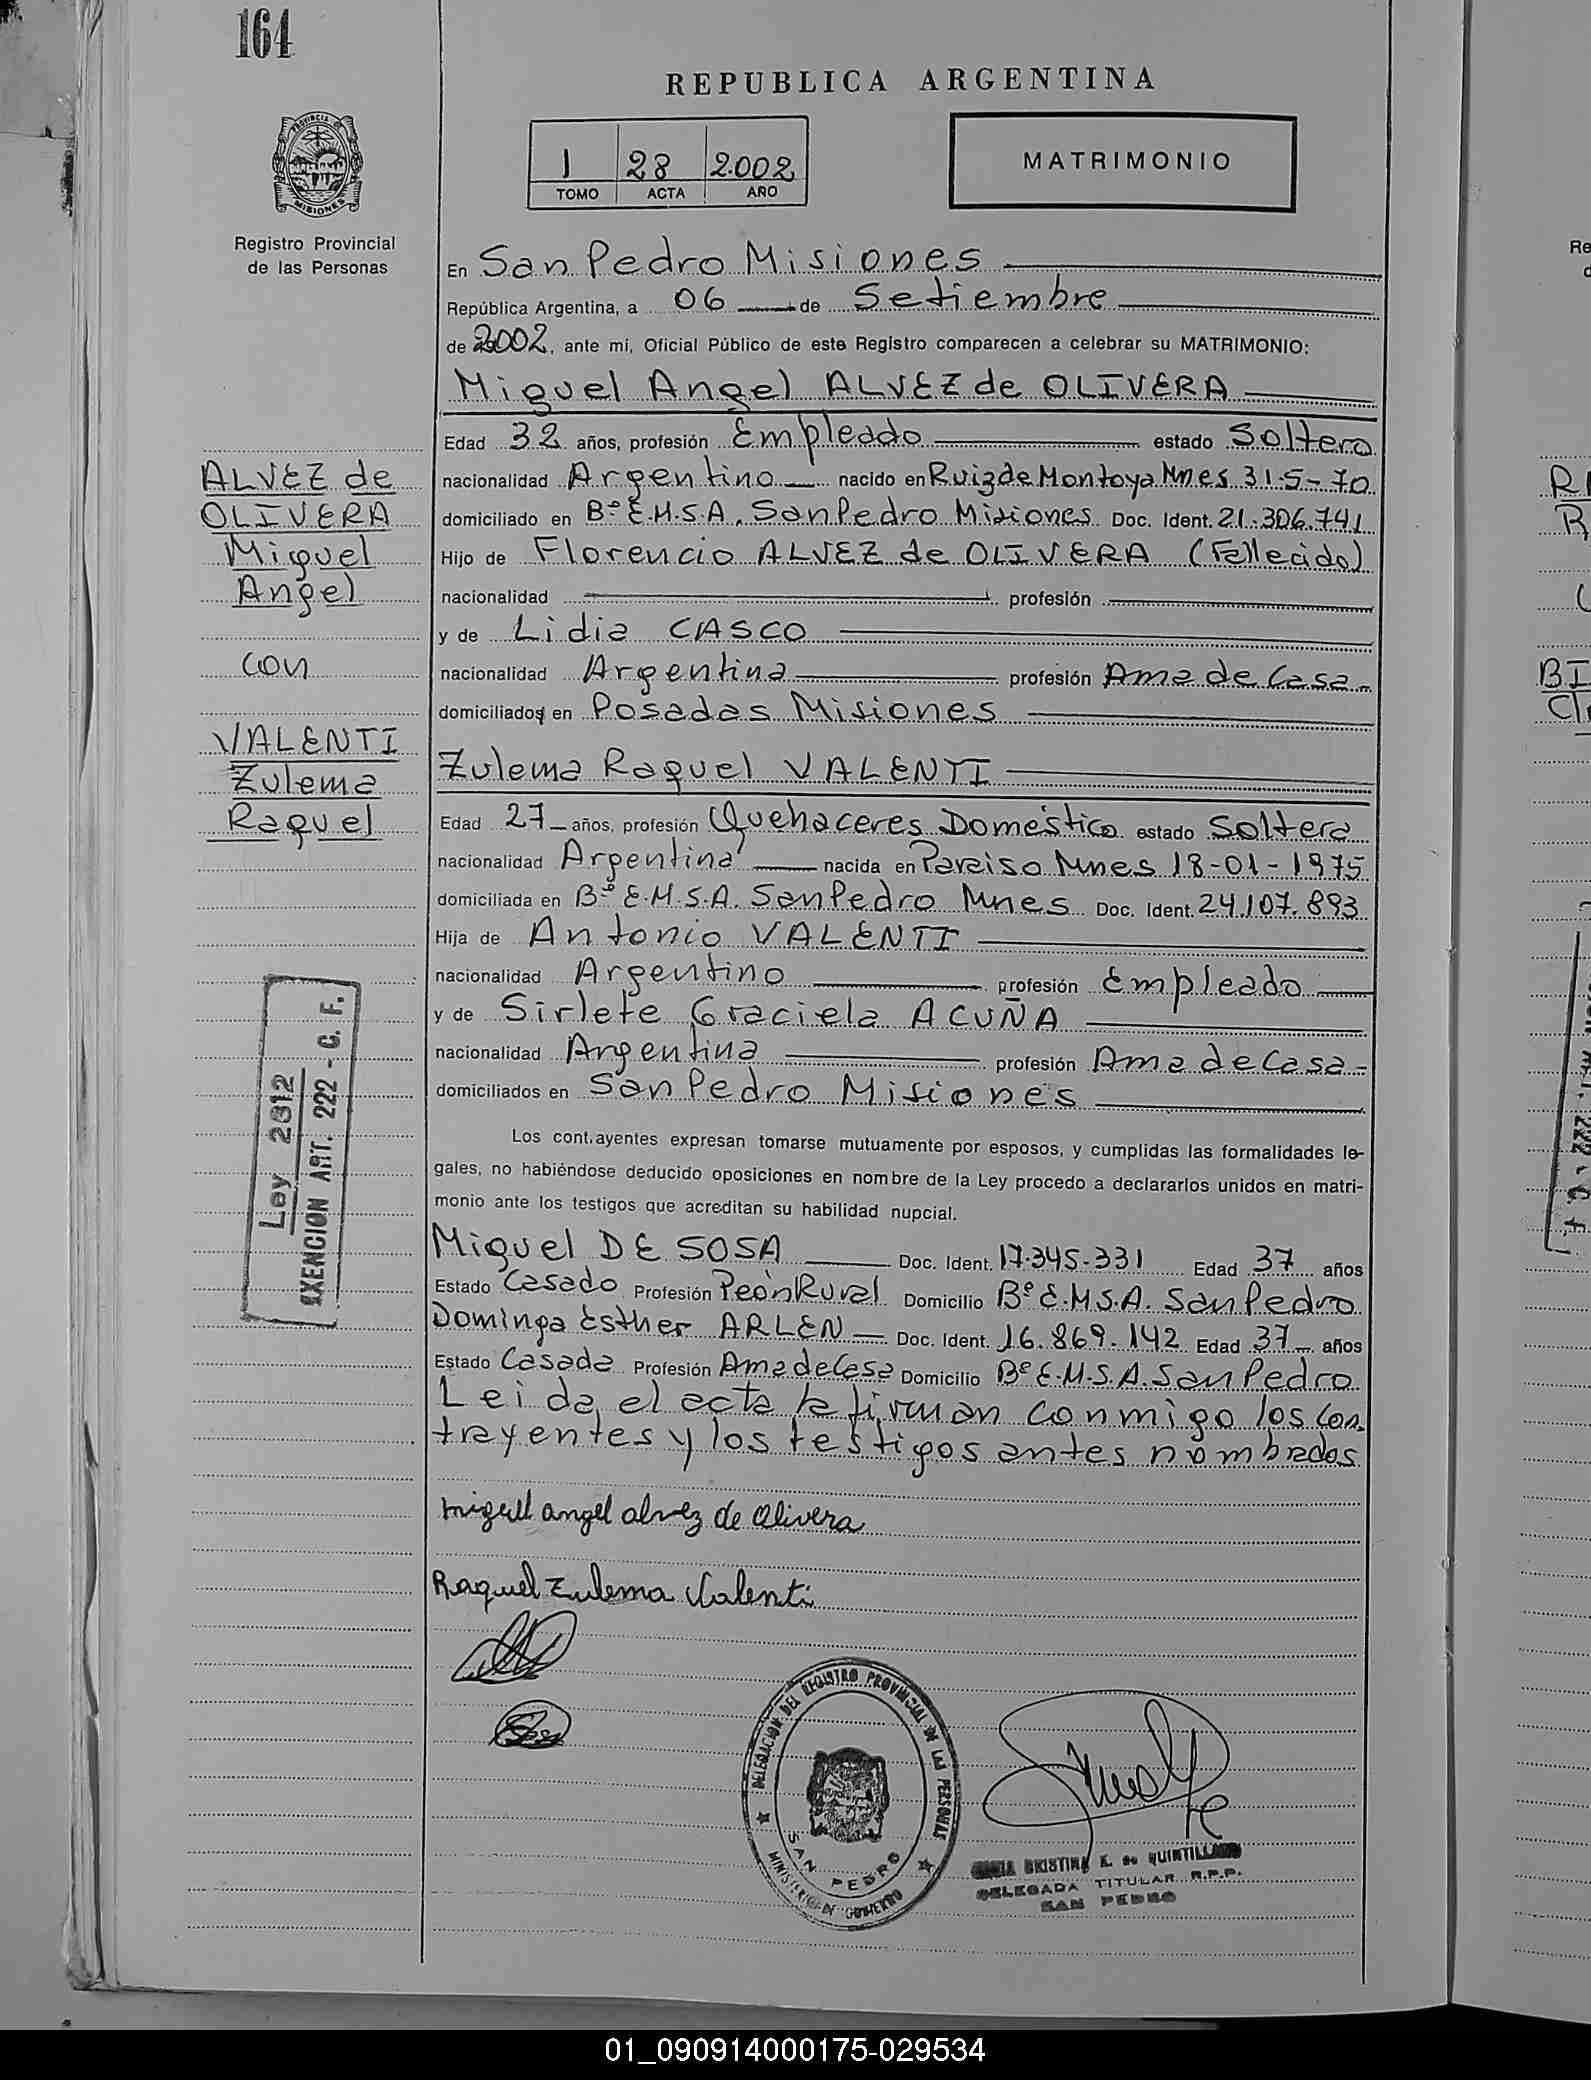 164
REPUBLICA ARGENTINA
PROVINCIA DE
MISIONES
Registro Provincial
de las Personas
1 28 2.002
TOMO ACTA AÑO
MATRIMONIO
En San Pedro Misiones
República Argentina, a 06 de Setiembre
de 2002, ante mí, Oficial Público de este Registro comparecen a celebrar su MATRIMONIO:
Miguel Angel ALVEZ de OLIVERA
Edad 32 años, profesión Empleado estado Soltero
nacionalidad Argentino nacido en Ruiz de Montoya Mnes 31-5-70
domiciliado en Bº E.M.S.A. San Pedro Misiones Doc. Ident. 21.306.741
Hijo de Florencio ALVEZ de OLIVERA (Fallecido)
nacionalidad profesión
y de Lidia CASCO
nacionalidad Argentina profesión Ama de Casa
domiciliados en Posadas Misiones
Zulema Raquel VALENTI
Edad 27 años, profesión Quehaceres Doméstico estado Soltera
nacionalidad Argentina nacida en Paraiso Mnes 18-01-1975
domiciliada en Bº E.M.S.A. San Pedro Mnes Doc. Ident. 24.107.893
Hija de Antonio VALENTI
nacionalidad Argentino profesión Empleado
y de Sirlete Graciela ACUÑA
nacionalidad Argentina profesión Ama de Casa
domiciliados en San Pedro Misiones
Los cont.ayentes expresan tomarse mutuamente por esposos, y cumplidas las formalidades le-
gales, no habiéndose deducido oposiciones en nombre de la Ley procedo a declararlos unidos en matri-
monio ante los testigos que acreditan su habilidad nupcial.
Miguel DE SOSA Doc. Ident. 17.345.331 Edad 37 años
Estado Casado Profesión Peón Rural Domicilio Bº E.M.S.A. San Pedro
Dominga Esther ARLEN Doc. Ident. 16.869.142 Edad 37 años
Estado Casada Profesión Ama de Casa Domicilio Bº E.M.S.A. San Pedro
Leida el acta la firman conmigo los con-
trayentes y los testigos antes nombrados
ALVEZ de
OLIVERA
Miguel
Angel
con
VALENTI
Zulema
Raquel
Ley 2812
EXENCION ART. 222 - C. F.
Miguel angel alvez de Olivera
Raquel Zulema Valenti
DELEGACION DEL REGISTRO PROVINCIAL DE LAS PERSONAS
SAN PEDRO
MINISTERIO DE GOBIERNO
CRISTINA E. de QUINTILLANO
DELEGADA TITULAR R.P.P.
SAN PEDRO
01_090914000175-029534